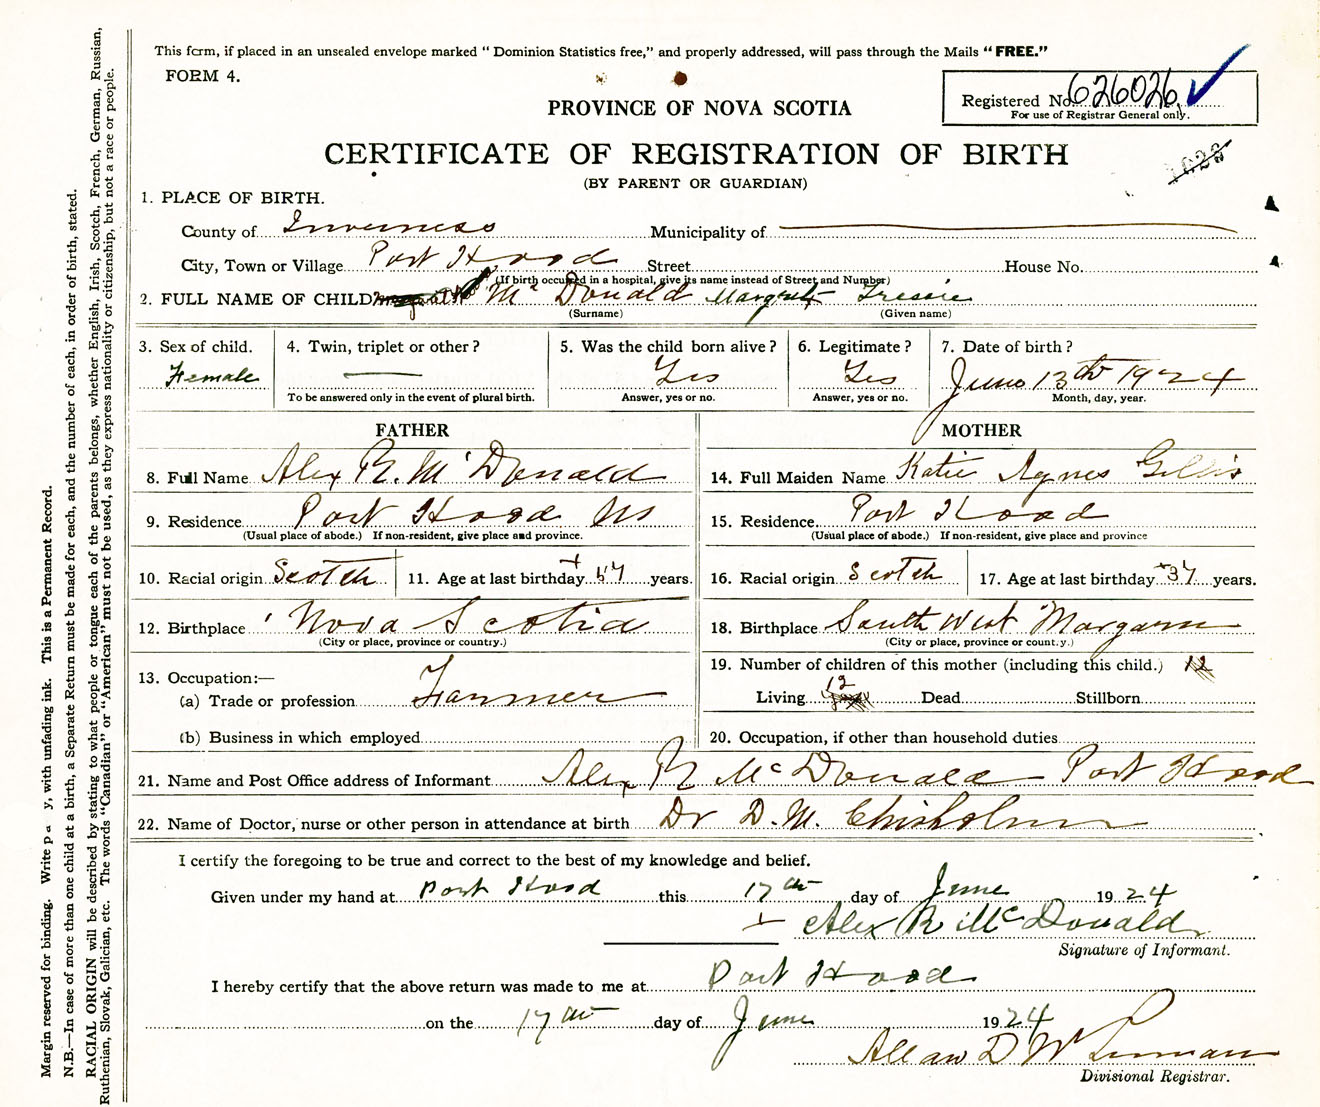 This form, if placed in an unsealed envelope marked "Dominion Statistics free," and properly addressed, will pass through the Mails "FREE."
FORM 4.
PROVINCE OF NOVA SCOTIA
Registered No. 626026
For use of Registrar General only.
CERTIFICATE OF REGISTRATION OF BIRTH
(BY PARENT OR GUARDIAN)
1. PLACE OF BIRTH.
County of Inverness Municipality of
City, Town or Village Port Hood Street House No.
(If birth occurred in a hospital, give its name instead of Street and Number)
2. FULL NAME OF CHILD Mc Donald Margret Tressie
(Surname) (Given name)
3. Sex of child. 4. Twin, triplet or other? 5. Was the child born alive? 6. Legitimate? 7. Date of birth?
Female Yes Yes June 13th 1924
To be answered only in the event of plural birth. Answer, yes or no. Answer, yes or no. Month, day, year.
FATHER MOTHER
8. Full Name Alex R. Mc Donald 14. Full Maiden Name Katie Agnes Gillis
9. Residence Port Hood NS 15. Residence Port Hood
(Usual place of abode.) If non-resident, give place and province. (Usual place of abode.) If non-resident, give place and province
10. Racial origin Scotch 11. Age at last birthday 57 years. 16. Racial origin Scotch 17. Age at last birthday 37 years.
12. Birthplace Nova Scotia 18. Birthplace South West Margaree
(City or place, province or country.) (City or place, province or country.)
13. Occupation:— 19. Number of children of this mother (including this child.) 12
(a) Trade or profession Farmer Living 12 Dead Stillborn
(b) Business in which employed 20. Occupation, if other than household duties
21. Name and Post Office address of Informant Alex R McDonald Port Hood
22. Name of Doctor, nurse or other person in attendance at birth Dr D. M. Chisholm
I certify the foregoing to be true and correct to the best of my knowledge and belief.
Given under my hand at Port Hood this 17th day of June 1924
Alex R McDonald
Signature of Informant.
I hereby certify that the above return was made to me at Port Hood
on the 17th day of June 1924
Allan D
Divisional Registrar.
Margin reserved for binding. Write p a y, with unfading ink. This is a Permanent Record.
N.B.—In case of more than one child at a birth, a Separate Return must be made for each, and the number of each, in order of birth, stated.
RACIAL ORIGIN will be described by stating to what people or tongue each of the parents belongs, whether English, Irish, Scotch, French, German, Russian,
Ruthenian, Slovak, Galician, etc. The words "Canadian" or "American" must not be used, as they express nationality or citizenship, but not a race or people.